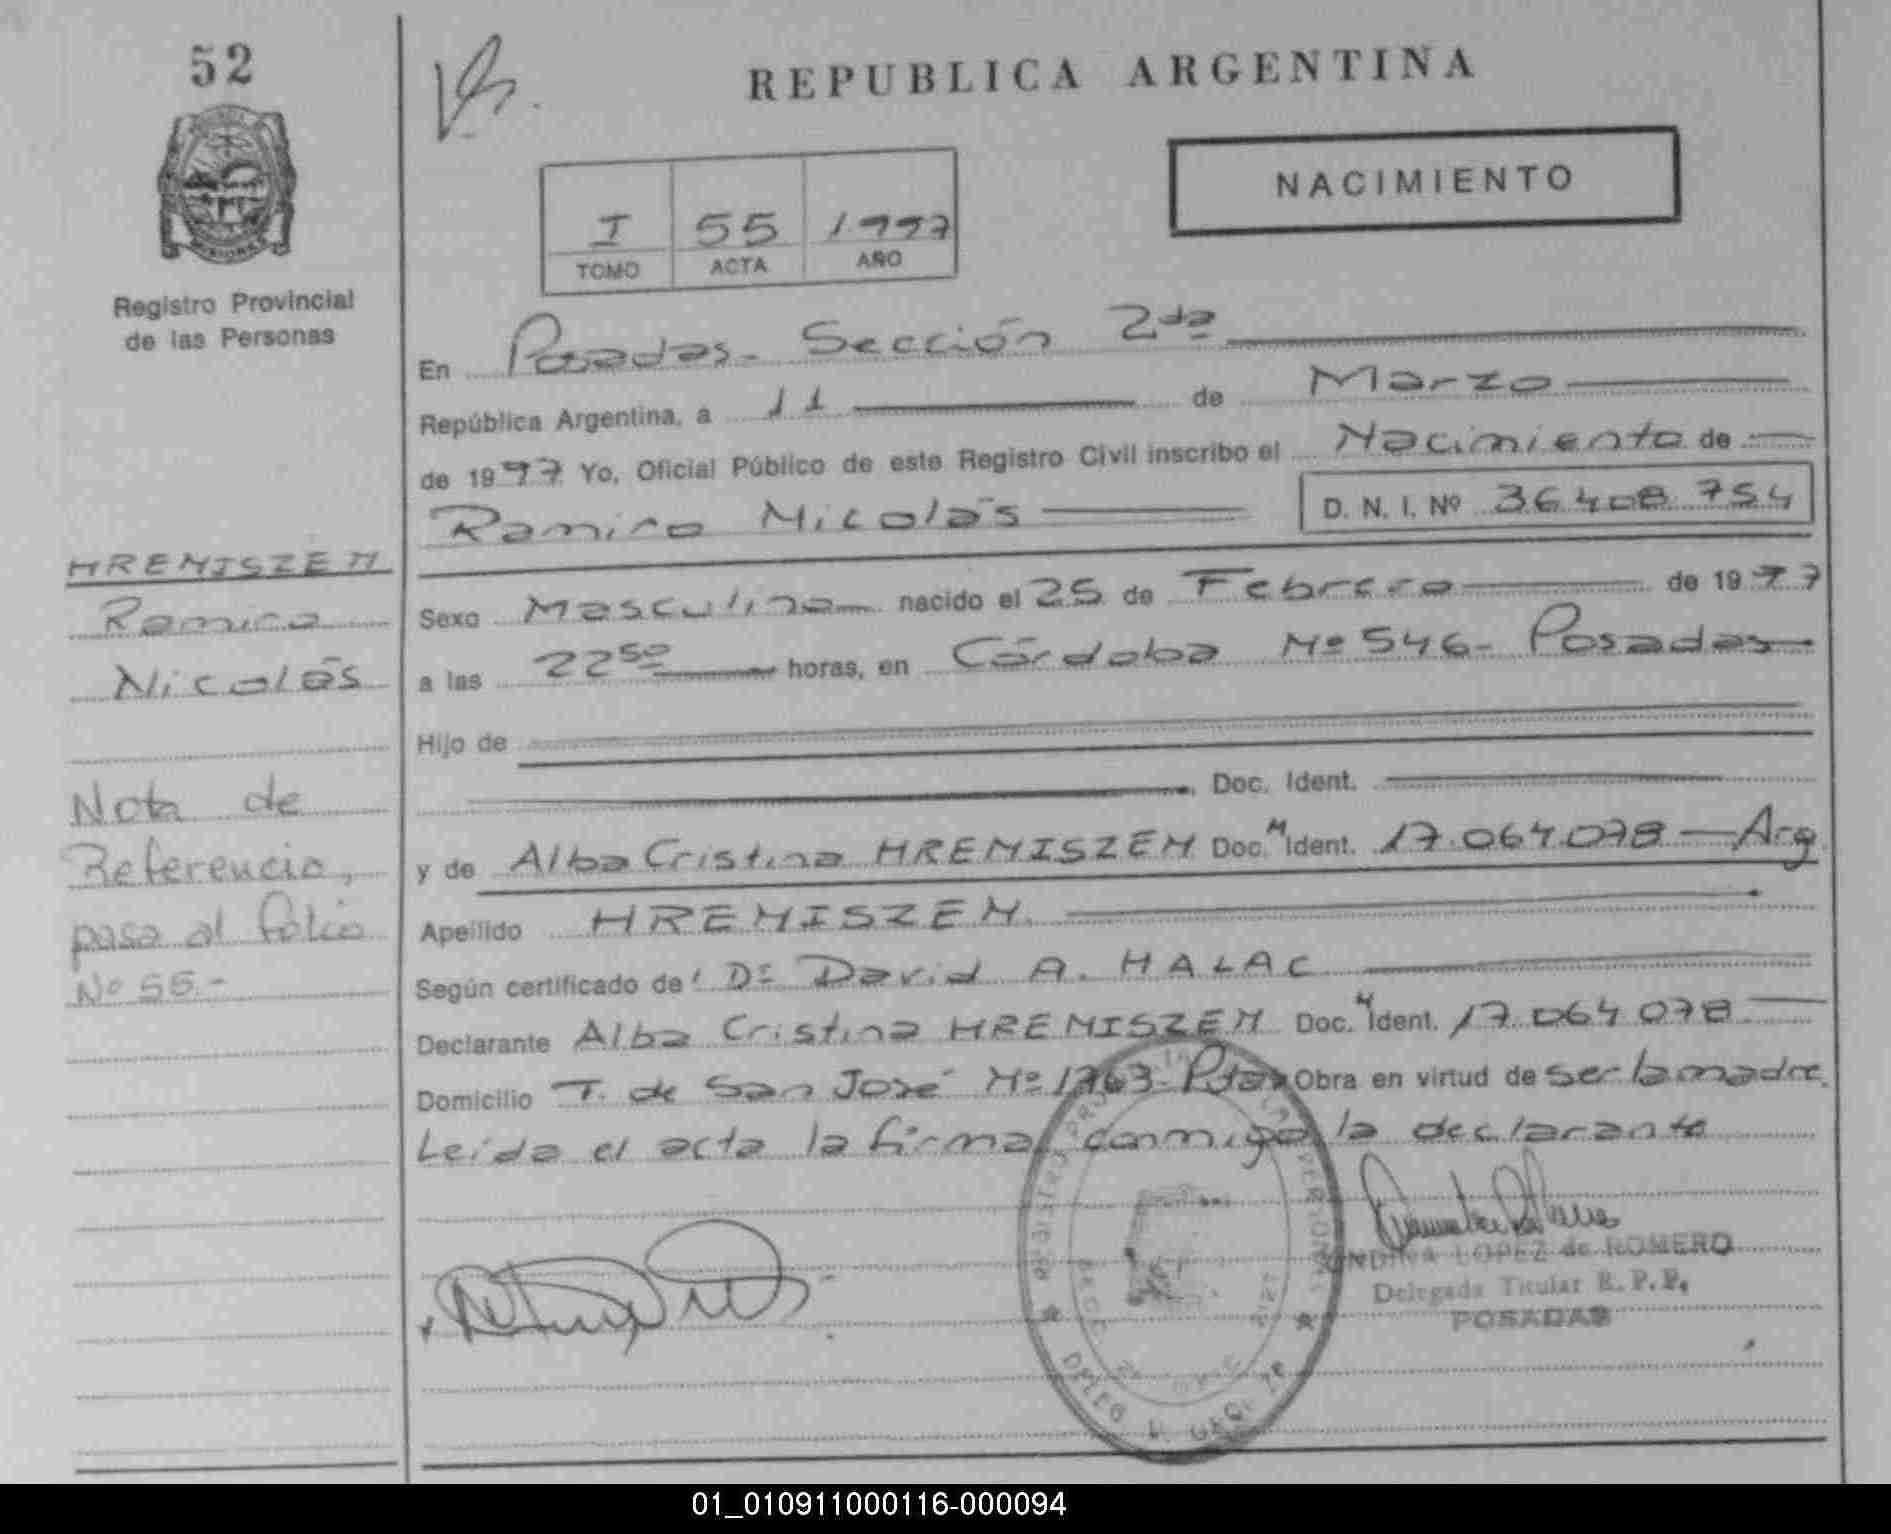 52
REPUBLICA ARGENTINA
NACIMIENTO
I 55 1997
TOMO ACTA AÑO
Registro Provincial
de las Personas
En Posadas - Sección 2da
República Argentina, a 11 de Marzo
de 1997 Yo, Oficial Público de este Registro Civil inscribo el Nacimiento de
Ramiro Nicolás D. N. I. Nº 36.408.754
HREMISZEM
Ramiro
Nicolás
Sexo Masculino nacido el 25 de Febrero de 1997
a las 22⁵⁰ horas, en Córdoba Nº 546 - Posadas
Hijo de
Doc. Ident.
y de Alba Cristina HREMISZEM Doc. M Ident. 17.064.078 - Arg
Apellido HREMISZEM
Según certificado de Dr David A. HALAC
Declarante Alba Cristina HREMISZEM Doc. M Ident. 17.064.078
Domicilio T. de San José Nº 1763 - Pdas Obra en virtud de ser la madre.
Leída el acta la firma conmigo la declarante
Nota de
Referencia,
pasa al folio
Nº 55.-
LOPEZ de ROMERO
Delegada Titular R. P. P.
POSADAS
01_010911000116-000094